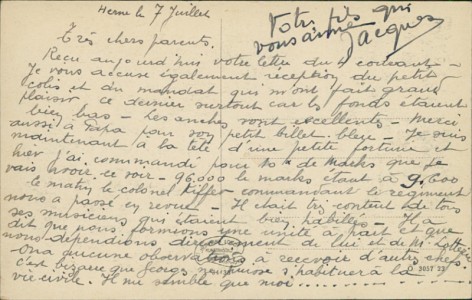 Herne le 7 Juillet
Votre fils qui
vous aime
Jacques
Très chers parents.
Reçu aujourd'hui votre lettre du 4 courant -
Je vous accuse également réception du petit
colis et du mandat qui m'ont fait grand
plaisir ce dernier surtout car les fonds étaient
bien bas - Les anches sont excellents - Merci
aussi à Papa pour son petit billet bleu - Je suis
maintenant à la tête d'une petite fortune et
hier j'ai commandé pour 10 de Marks que je
vais avoir ce soir - 96.000 le marks étant à 9,600
le matin le colonel commandant le régiment
nous a passé en revue - Il était très content de tous
ses musiciens qui étaient bien habillés - Il a
dit que nous formions une unité à part et que
nous dépendions directement de lui et de M.
aucune observations à recevoir d'autres chefs
c'est bizarre que Georges ne puisse s'habituer à la
vie civile. Il me semble que moi
3017 23